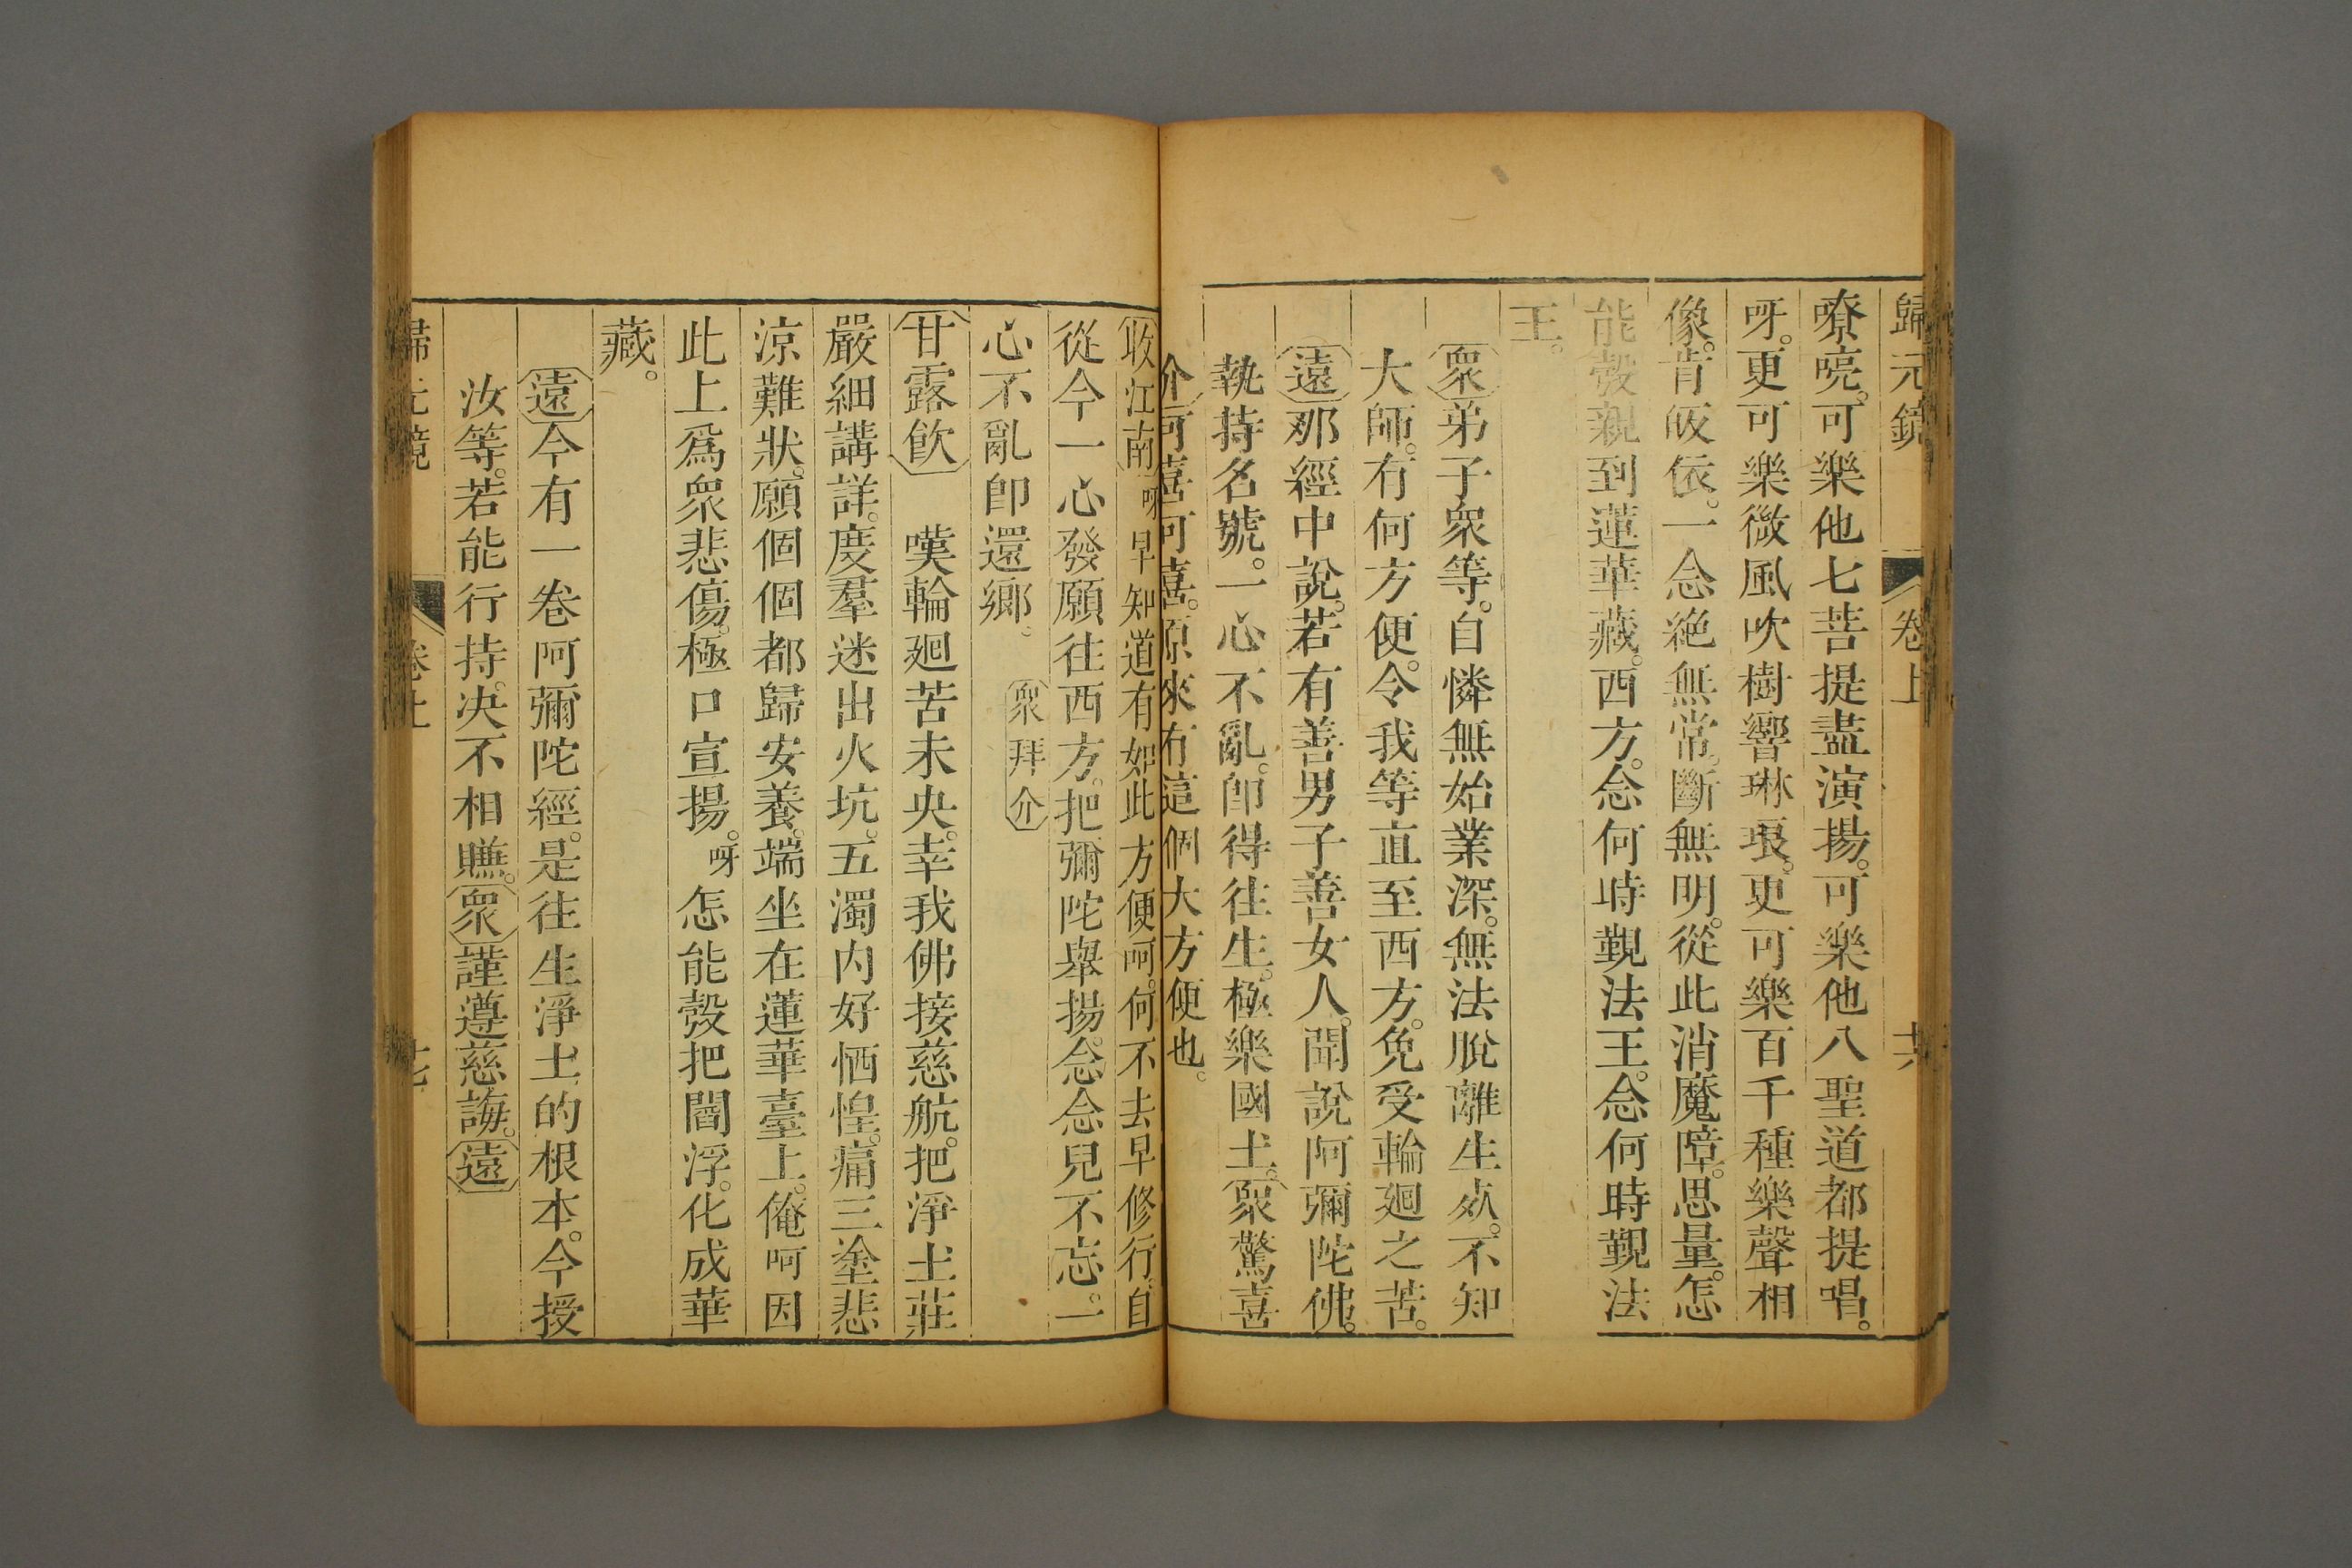 歸元鏡 卷上 十六
嘹喨。可樂他七菩提盡演揚。可樂他八聖道都提唱。
呀。更可樂微風吹樹響琳琅。更可樂百千種樂聲相
像。肯皈依。一念絕無常。斷無明。從此消魔障。思量。怎
能彀親到蓮華藏。西方。念何時覲法王。念何時覲法
王。
衆弟子衆等。自憐無始業深。無法脫離生死。不知
大師。有何方便。令我等直至西方。免受輪廻之苦。
遠那經中說。若有善男子善女人。聞說阿彌陀佛。
執持名號。一心不亂。卽得往生。極樂國土。衆驚喜
介可喜可喜。原來有這個大方便也。
收江南呀早知道有如此方便呵。何不去早修行。自
從今一心發願往西方。把彌陀舉揚。念念兒不忘。一
心不亂卽還鄉。 衆拜介
甘露飲 嘆輪廻苦未央。幸我佛接慈航。把淨土莊
嚴細講詳。度羣迷出火坑。五濁內好恓惶。痛三塗悲
涼難狀。願個個都歸安養。端坐在蓮華臺上。俺呵因
此上爲衆悲傷。極口宣揚。呀怎能彀把閻浮。化成華
藏。
遠今有一卷阿彌陀經。是往生淨土的根本。今授
汝等。若能行持。決不相賺。衆謹遵慈誨。遠
歸元鏡 卷上 十七